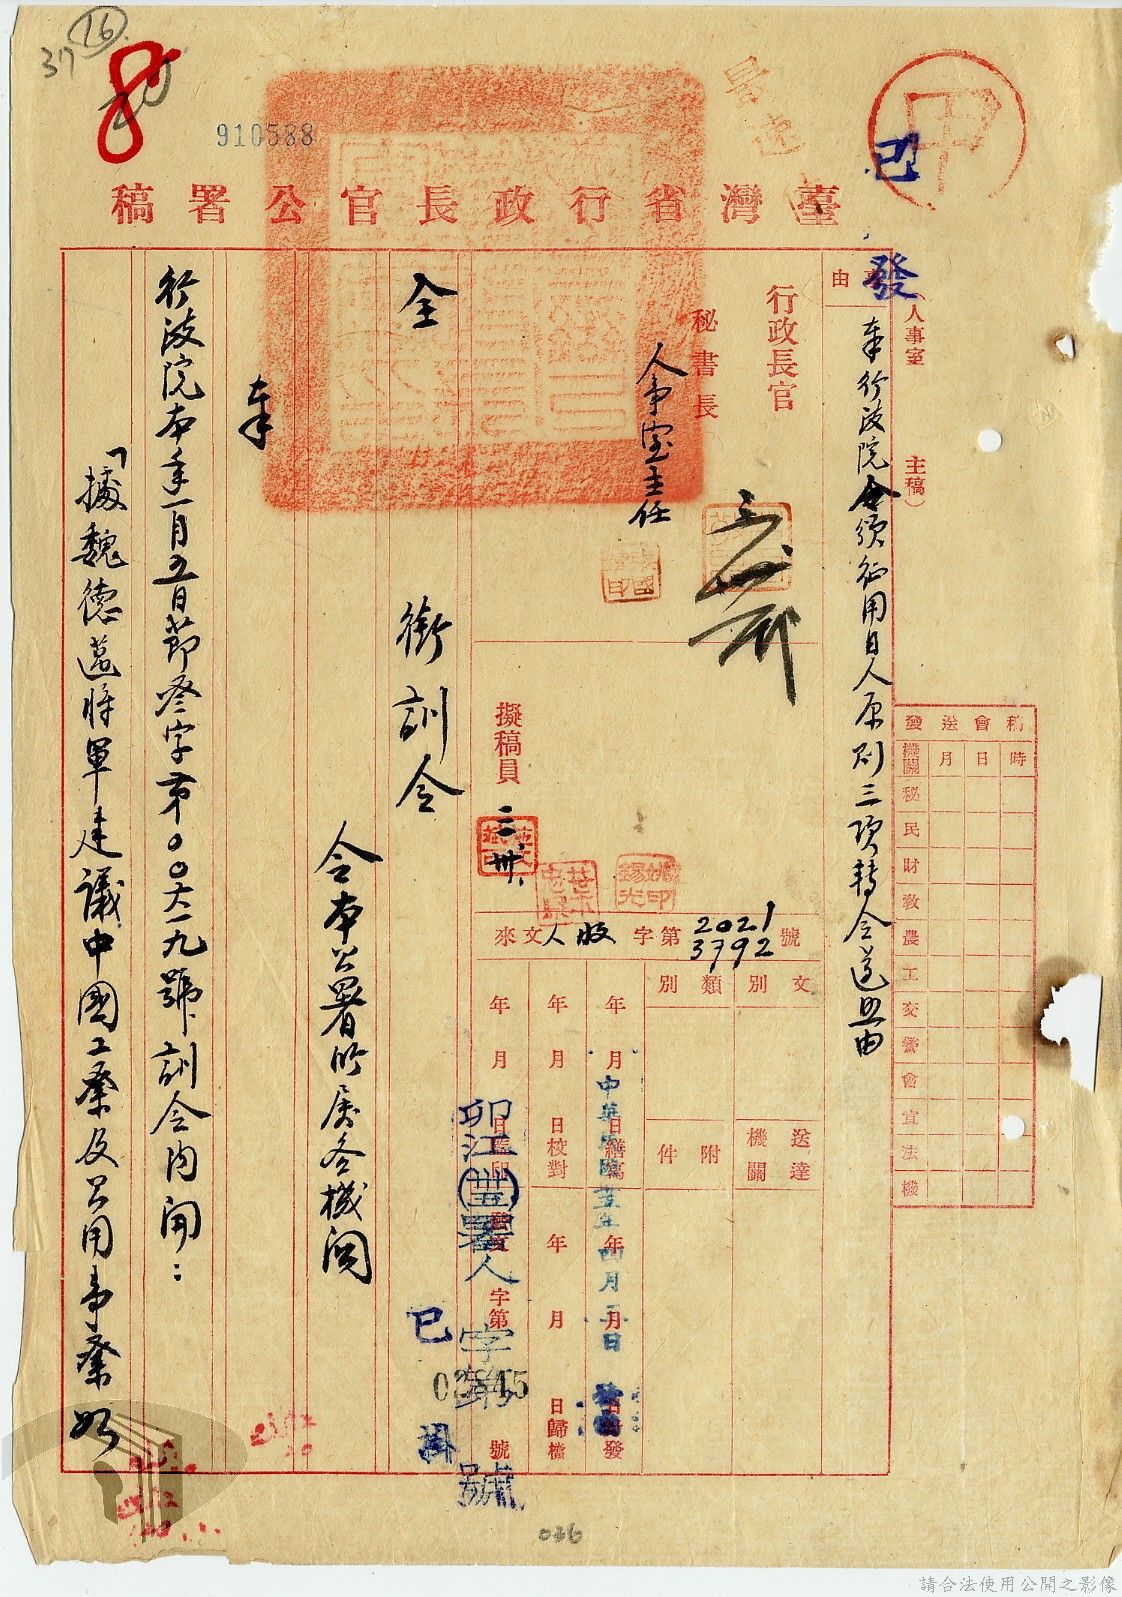 37
16
910588
臺灣省行政長官公署稿
已發
(人事室
主稿)
事由
奉行政院令頒征用日人原則三項轉令遵照由
行政長官
秘書長
人事室主任
擬稿員
三、卅、
來文人收字第2021
3792號
文別
類別
送達機關
附件
年月日繕寫
年月日校對
年月日蓋印
年月日封發
年月日歸檔
發文
字第
號
中華民國卅五年四月二日
卯江(卅五)署人字第02845號
已掛
稿會送發
時日月機關
秘
民
財
教
農
工
交
警
會
宣
法
機
全銜訓令
令本公署所屬各機關
奉
行政院本年一月五日節叄字第〇〇六一九號訓令內開：
「據魏德邁將軍建議中國工業及公用事業如
036
請合法使用公開之影像